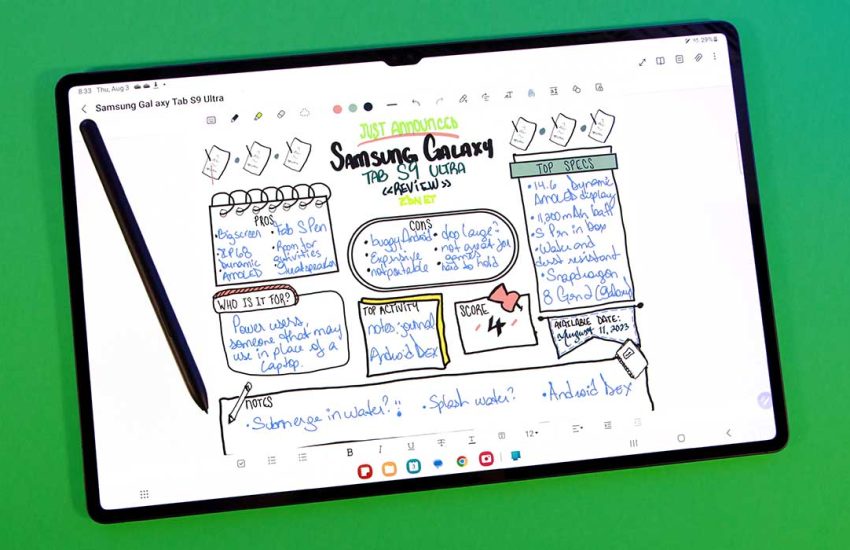 8:33 Thu, Aug 3
29%
Samsung Gal axy Tab S9 Ultra
JUST ANNOUNCED
SAMSUNG GALAXY
TAB S9 ULTRA
<<REVIEW>>
ZDNET
PROS
• Big screen
• IP68
Dynamic
AMOLED
• Tab S Pen
• Room for
activities
• Great speakers
CONS
• buggy Android
• Expensive
• not portable
• too large
• not great for
games
• hard to hold
TOP SPECS
• 14.6 Dynamic
AMOLED display
• 11,200 mAh batt
• S Pen in Box
• Water and
dust resistant
• Snapdragon
8 Gen 2 (Galaxy)
WHO IS IT FOR?
Power users,
someone that may
use in place of a
laptop.
TOP ACTIVITY
notes/journal
Android DEX
SCORE
4
AVAILABLE DATE:
August 11, 2023
NOTES
• Submerge in water?
• Splash water?
• Android DEX
B I U T
12